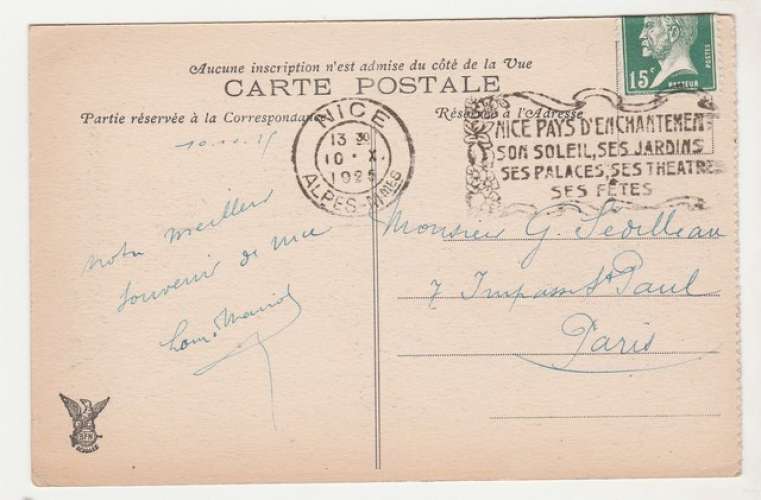 Aucune inscription n'est admise du côté de la Vue
CARTE POSTALE
Partie réservée à la Correspondance
Réservée à l'Adresse
15c
POSTES
PASTEUR
NICE
13 30
10 · X.
1925
ALPES-MMES
NICE PAYS D'ENCHANTEMEN
SON SOLEIL, SES JARDINS
SES PALACES, SES THEATRE
SES FÊTES
Notre meilleur
souvenir de Nice
Monsieur G. Sedilleau
7 Impasse St Paul
Paris